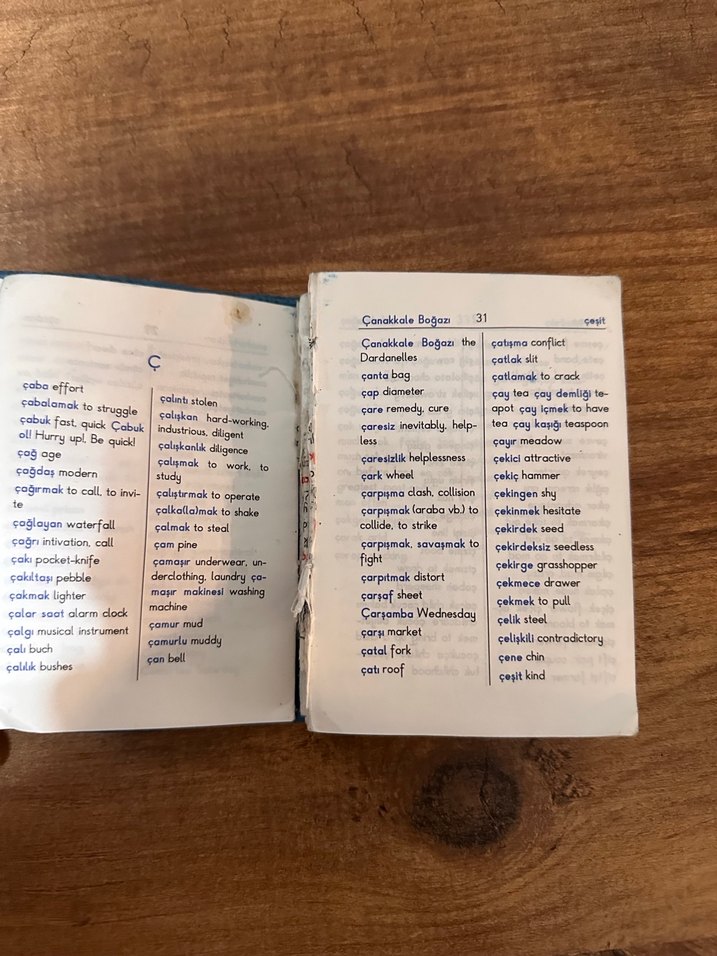 Ç
çaba effort
çabalamak to struggle
çabuk fast, quick Çabuk
ol! Hurry up!, Be quick!
çağ age
çağdaş modern
çağırmak to call, to invi-
te
çağlayan waterfall
çağrı intivation, call
çakı pocket-knife
çakıltaşı pebble
çakmak lighter
çalar saat alarm clock
çalgı musical instrument
çalı buch
çalılık bushes
çalıntı stolen
çalışkan hard-working,
industrious, diligent
çalışkanlık diligence
çalışmak to work, to
study
çalıştırmak to operate
çalka(la)mak to shake
çalmak to steal
çam pine
çamaşır underwear, un-
derclothing, laundry ça-
maşır makinesi washing
machine
çamur mud
çamurlu muddy
çan bell
Çanakkale Boğazı 31 çeşit
Çanakkale Boğazı the
Dardanelles
çanta bag
çap diameter
çare remedy, cure
çaresiz inevitably, help-
less
çaresizlik helplessness
çark wheel
çarpışma clash, collision
çarpışmak (araba vb.) to
collide, to strike
çarpışmak, savaşmak to
fight
çarpıtmak distort
çarşaf sheet
Çarşamba Wednesday
çarşı market
çatal fork
çatı roof
çatışma conflict
çatlak slit
çatlamak to crack
çay tea çay demliği te-
apot çay içmek to have
tea çay kaşığı teaspoon
çayır meadow
çekici attractive
çekiç hammer
çekingen shy
çekinmek hesitate
çekirdek seed
çekirdeksiz seedless
çekirge grasshopper
çekmece drawer
çekmek to pull
çelik steel
çelişkili contradictory
çene chin
çeşit kind